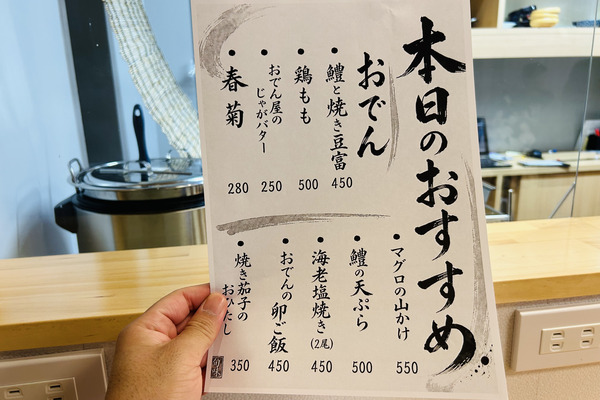 本日のおすすめ
おでん
・鱧と焼き豆富 450
・鶏もも 500
・おでん屋の
じゃがバター 250
・春菊 280
・マグロの山かけ 550
・鱧の天ぷら 500
・海老塩焼き(2尾) 450
・おでんの卵ご飯 450
・焼き茄子の
おひたし 350